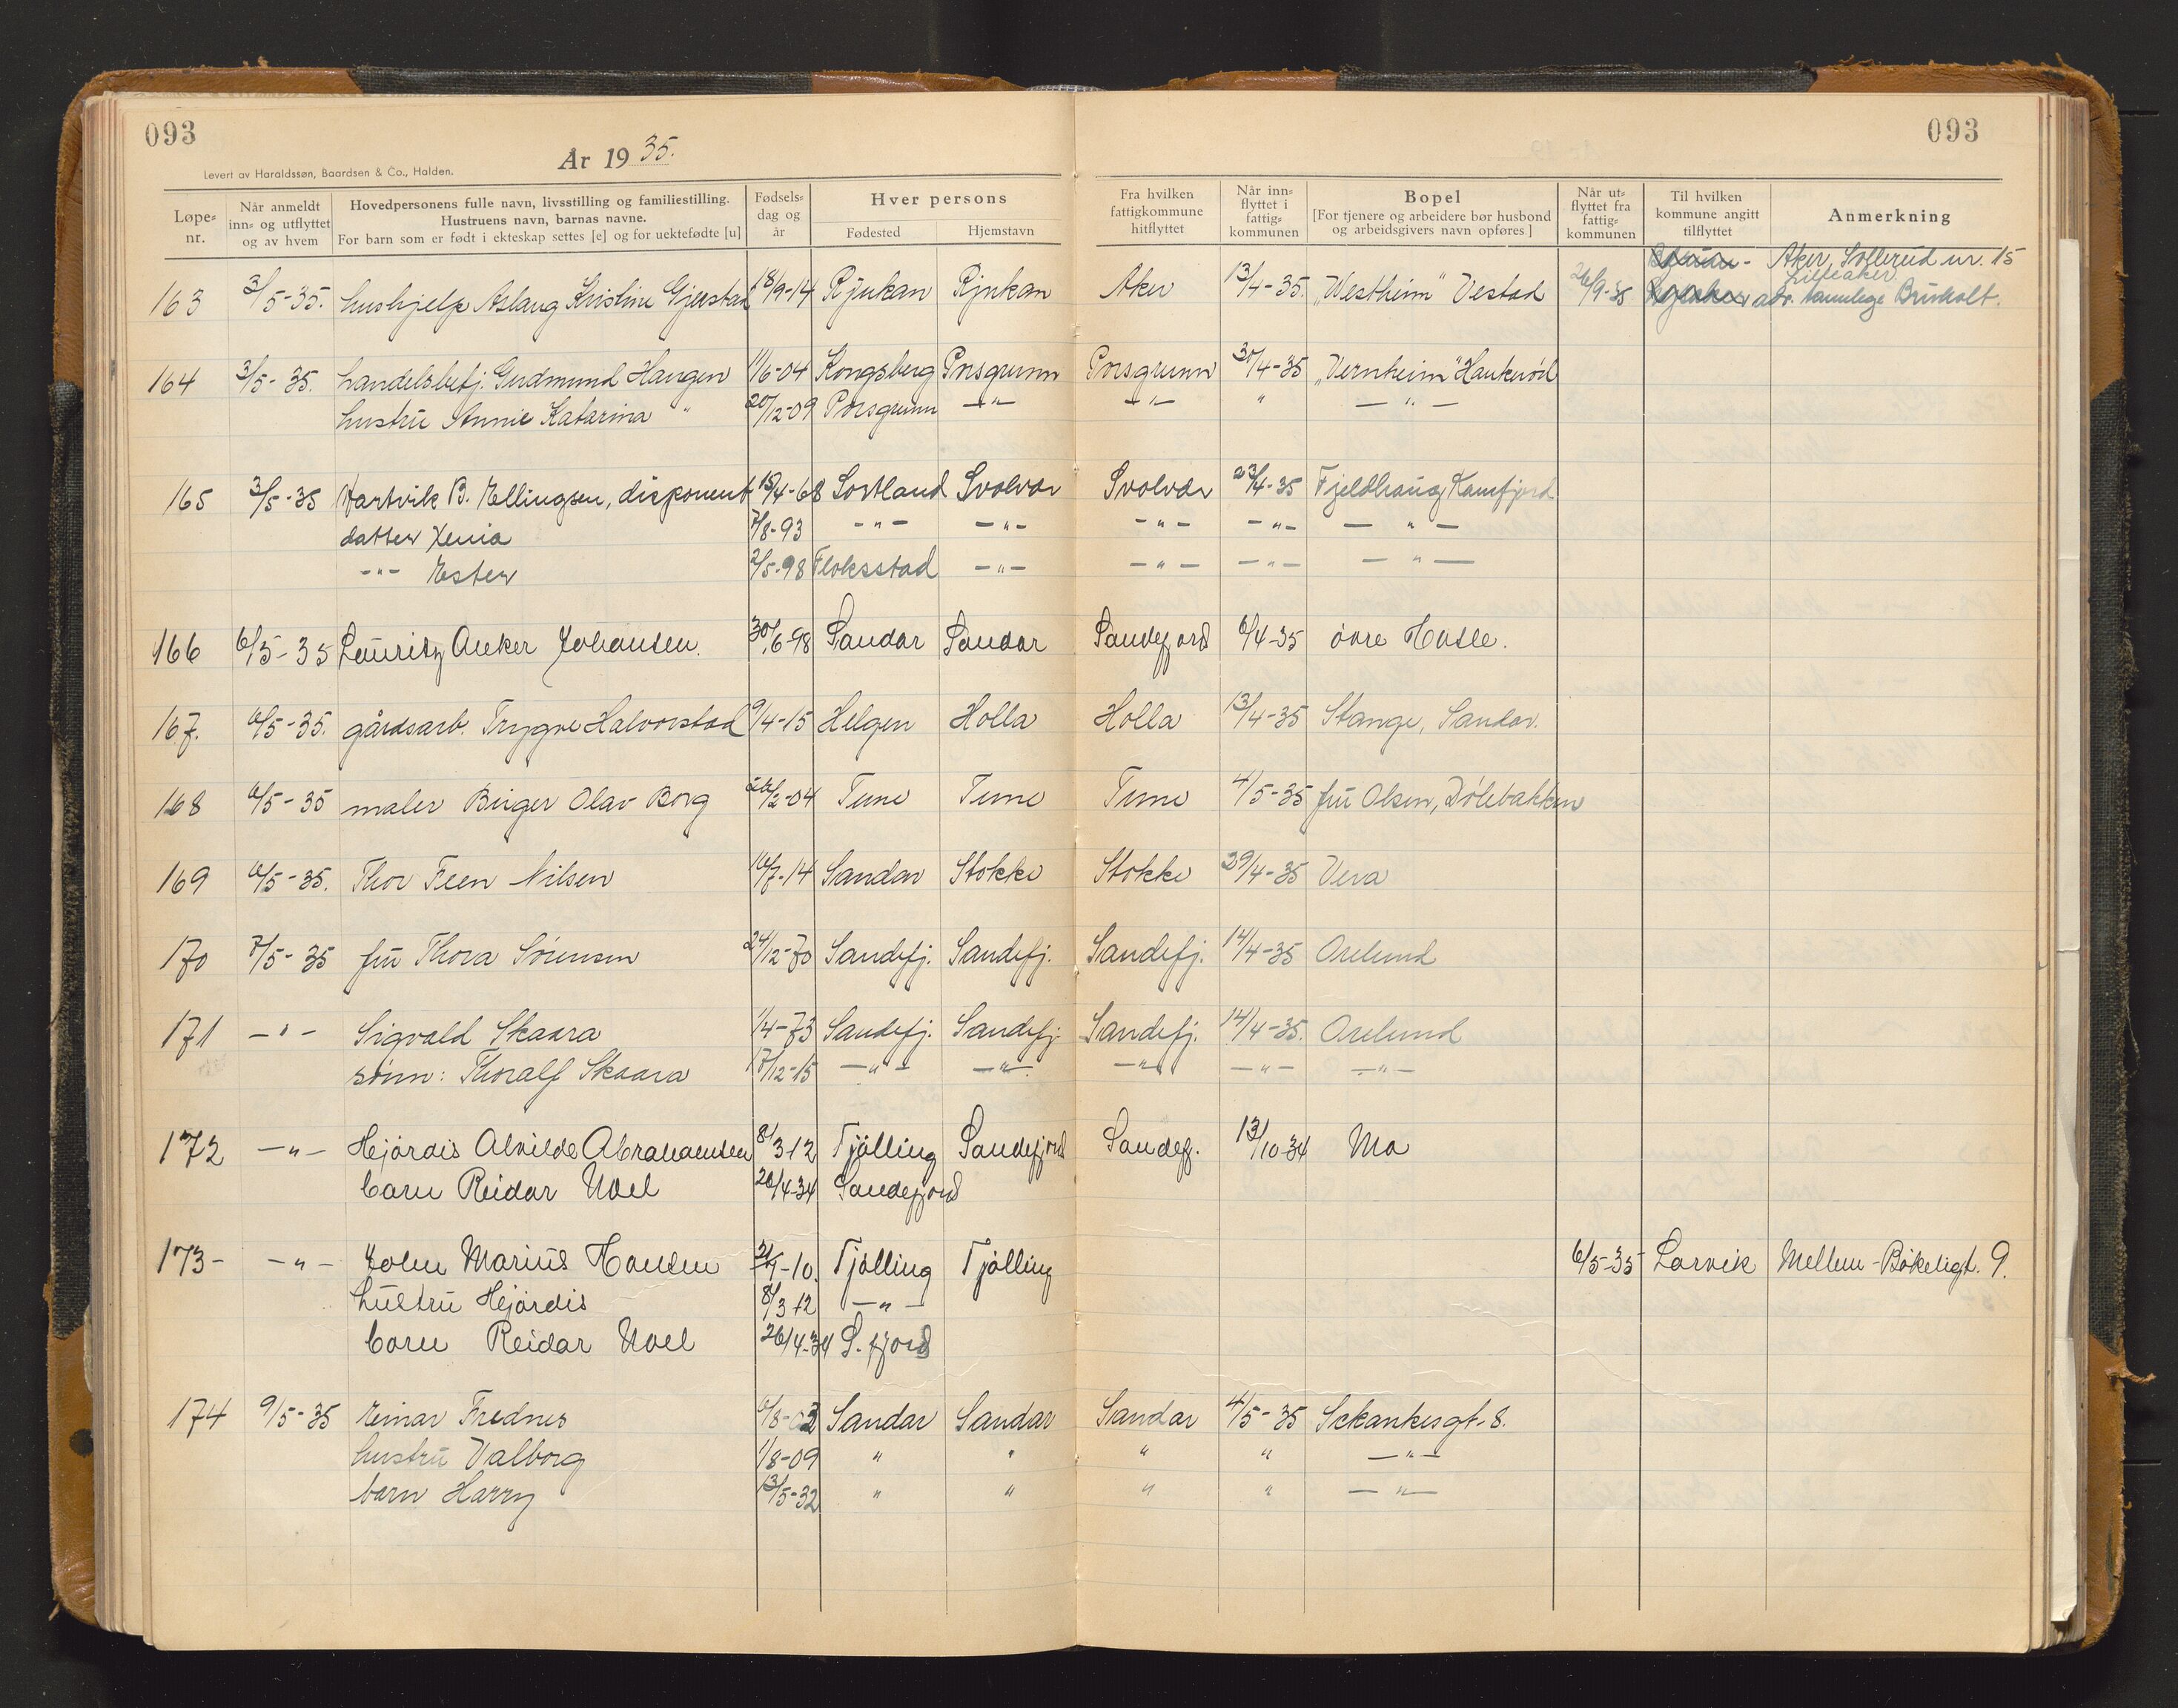 093
093
År 1935.
Levert av Haraldssøn, Baardsen & Co., Halden.
Løpe-nr.
Når anmeldt inn- og utflyttet og av hvem
Hovedpersonens fulle navn, livsstilling og familiestilling. Hustruens navn, barnas navne. For barn som er født i ekteskap settes [e] og for uektefødte [u]
Fødsels-dag og år
Hver persons
Fødested
Hjemstavn
Fra hvilken fattigkommune hitflyttet
Når inn-flyttet i fattig-kommunen
Bopel [For tjenere og arbeidere bør husbond og arbeidsgivers navn opføres.]
Når ut-flyttet fra fattig-kommunen
Til hvilken kommune angitt tilflyttet
Anmerkning
Aker, Sollerud nr. 15
Lilleaker
163 3/5-35. hushjelp Aslaug Kristine Gjerstad 18/9-14 Rjukan Rjukan Aker 13/4-35. "Westheim" Vestad 26/9-35 adr. tannlege Bruholt.
164 3/5-35. handelsbetj. Gudmund Haugen 11/6-04 Kongsberg Porsgrunn Porsgrunn 30/4-35 "Vernheim" Haukerød
hustru Annie Katarina " 20/12-09 Porsgrunn -"- -"- " -"-
165 3/5-35 Hartvik B. Ellingsen, disponent 15/4-68 Sortland Svolvær Svolvær 23/4-35 Fjeldhaug Kamfjord
datter Xenia 7/8-93 -"- -"- -"- -"- -"-
-"- Ester 2/5-98 Floksstad -"- -"- -"- -"-
166 6/5-35 Lauritz Anker Johansen. 30/6-98 Sandar Sandar Sandefjord 6/4-35 øvre Hasle.
167. 6/5-35. gårdsarb. Trygve Halvorstad 9/4-15 Helgen Holla Holla 13/4-35 Stange, Sandar.
168 6/5-35 maler Birger Olav Borg 26/2-04 Tune Tune Tune 4/5-35 fru Olsen, Dølebakken
169 6/5-35. Thor Feen Nilsen 16/7-14 Sandar Stokke Stokke 29/4-35 Vera
170 7/5-35 fru Thora Sørensen 24/12-70 Sandefj. Sandefj. Sandefj. 14/4-35 Orelund
171 -"- Sigvald Skaara 1/4-73 Sandefj. Sandefj. Sandefj. 14/4-35. Orelund
sønn: Thoralf Skaara 17/12-15 -"- -"- -"- -"- -"-
172 -"- Hejördis Alvilde Abrahamsen 8/3 12 Tjölling Sandefjord Sandefj. 13/10-34 Mo
barn Reidar Noel 26/4-34 Sandefjord
173- -"- John Marius Hansen -10. Tjölling Tjölling 6/5-35 Larvik Mellem-Bøkeligt. 9.
hustru Hejördis 8/3 12 -"-
barn Reidar Noel 26/4-34 S.fjord
174 9/5-35 Einar Frednes 6/8-03 Sandar Sandar Sandar 4/5-35 Sckankesgt. 8.
hustru Valborg 1/8-09 " " " " -"-
barn Harry 13/5-32 " " " " -"-